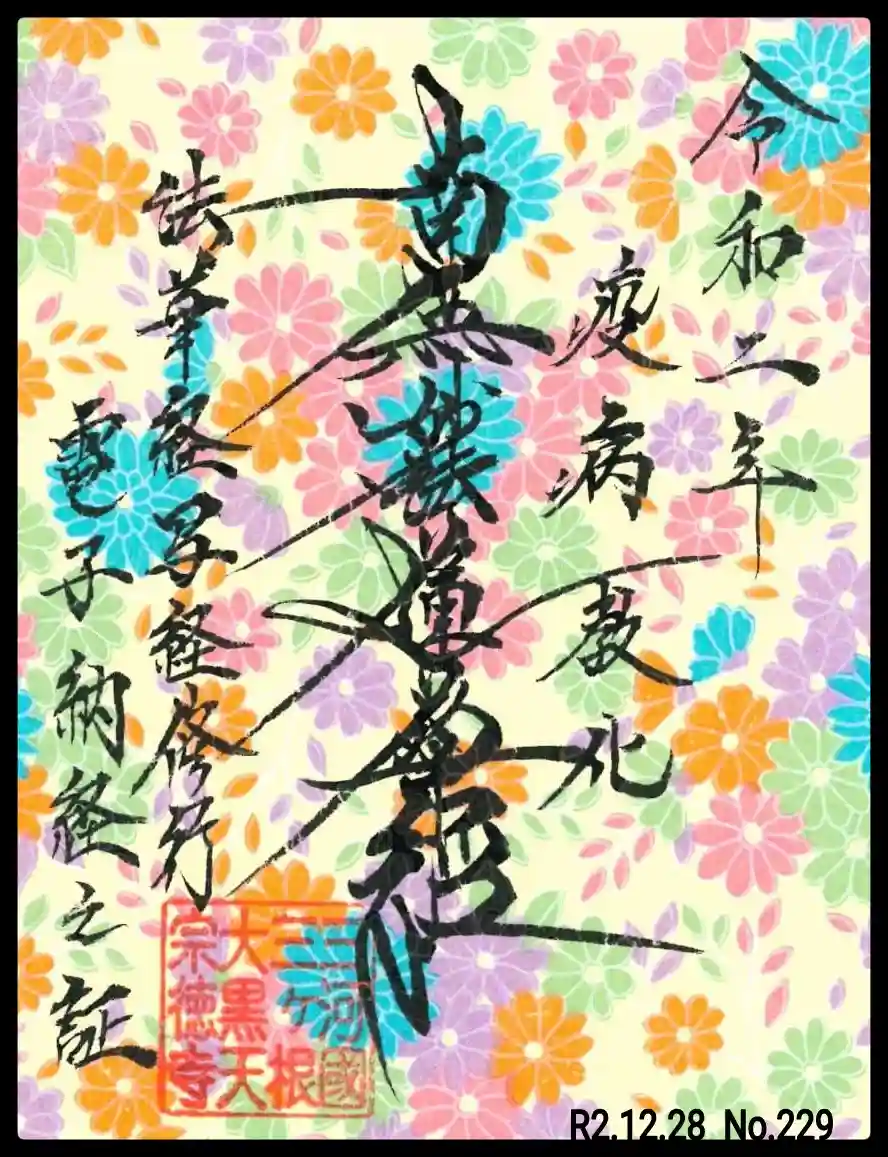 令和二年
疫病教化
南無妙法蓮華経
法華経写経修行
電子納経之証
三河國
三ヶ根
大黒天
宗徳寺
R2.12.28 No.229